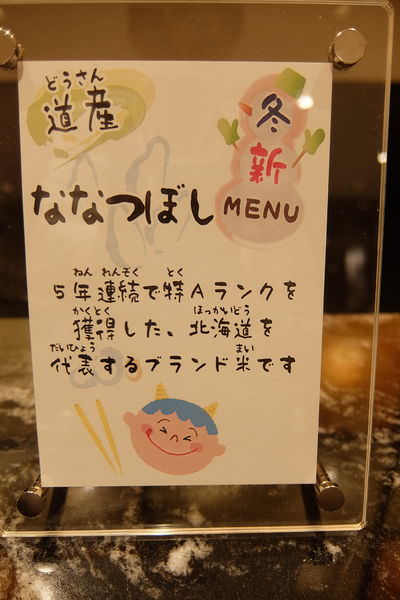 どうさん
道産
冬
新
MENU
ななつぼし
ねん れんぞく とく
5年連続で特Aランクを
かくとく ほっかいどう
獲得した、北海道を
だいひょう まい
代表するブランド米です